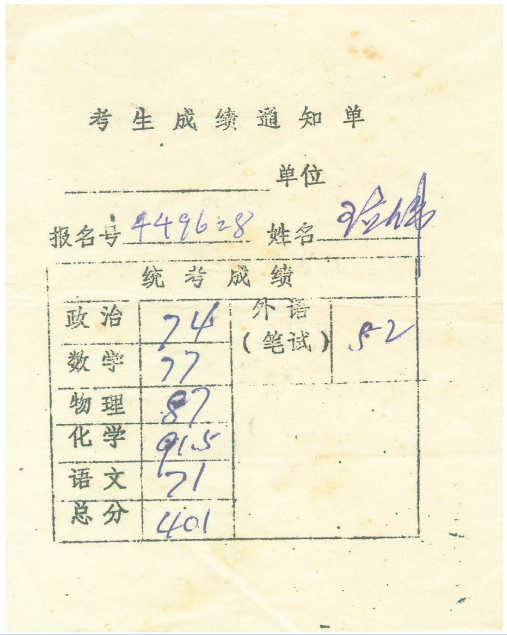 考生成绩通知单
单位
报名号 449628 姓名
统考成绩
政治 74 外语（笔试） 52
数学 77
物理 87
化学 91.5
语文 71
总分 401